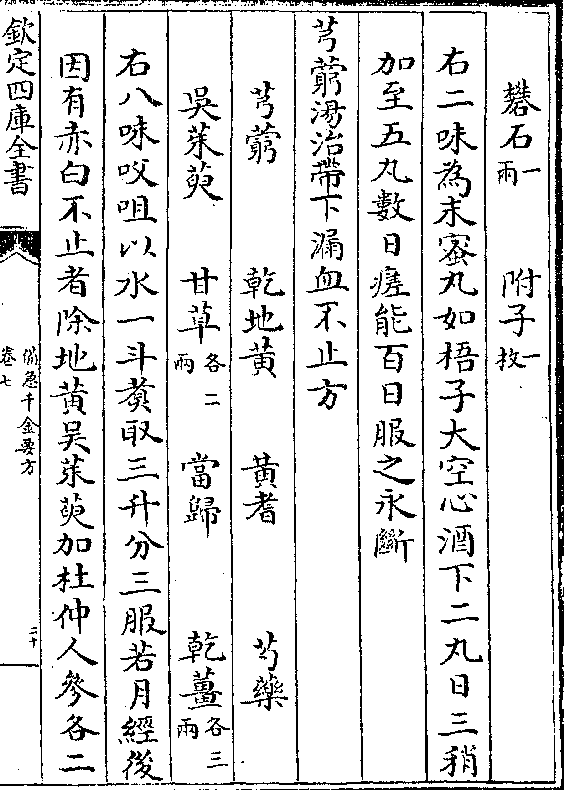 礬石一兩　附子一枚
右二味為末蜜丸如梧子大空心酒下二丸日三稍
加至五丸數日瘥能百日服之永斷
芎藭湯治帶下漏血不止方
芎藭　乾地黃　黃耆　芍藥
吳茱萸　甘草各二兩　當歸　乾薑各三兩
右八味㕮咀以水一斗煑取三升分三服若月經後
因有赤白不止者除地黃吳茱萸加杜仲人參各二
欽定四庫全書
備急千金要方
卷七
二十